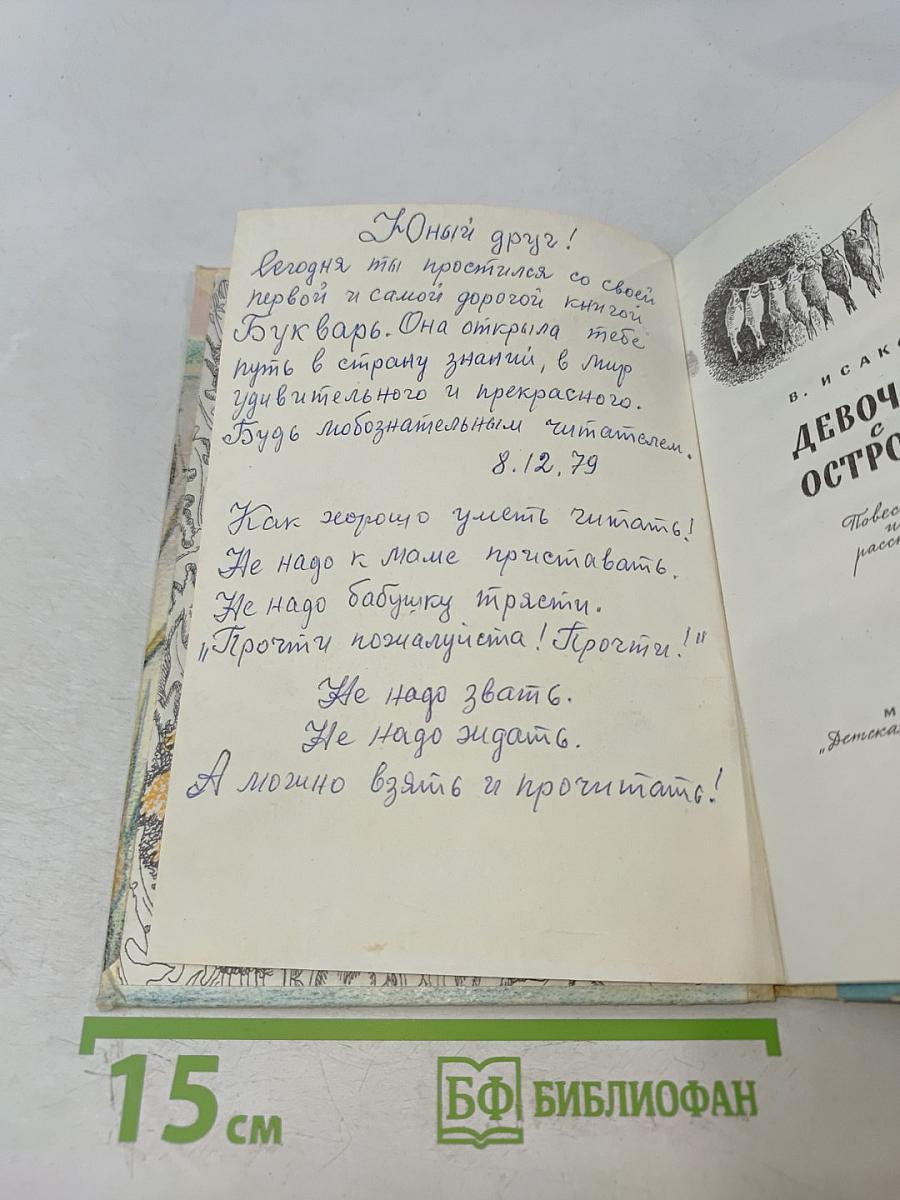 Юный друг!
Сегодня ты простился со своей
первой и самой дорогой книгой
Букварь. Она открыла тебе
путь в страну знаний, в мир
удивительного и прекрасного.
Будь любознательным читателем.
8.12.79
Как хорошо уметь читать!
Не надо к маме приставать.
Не надо бабушку трясти.
„Прочти пожалуйста! Прочти!"
Не надо звать.
Не надо ждать.
А можно взять и прочитать!
В. ИСАК
ДЕВОЧ
С
ОСТРО
Повес
и
расс
М
„Детска
15 см
БФ БИБЛИОФАН